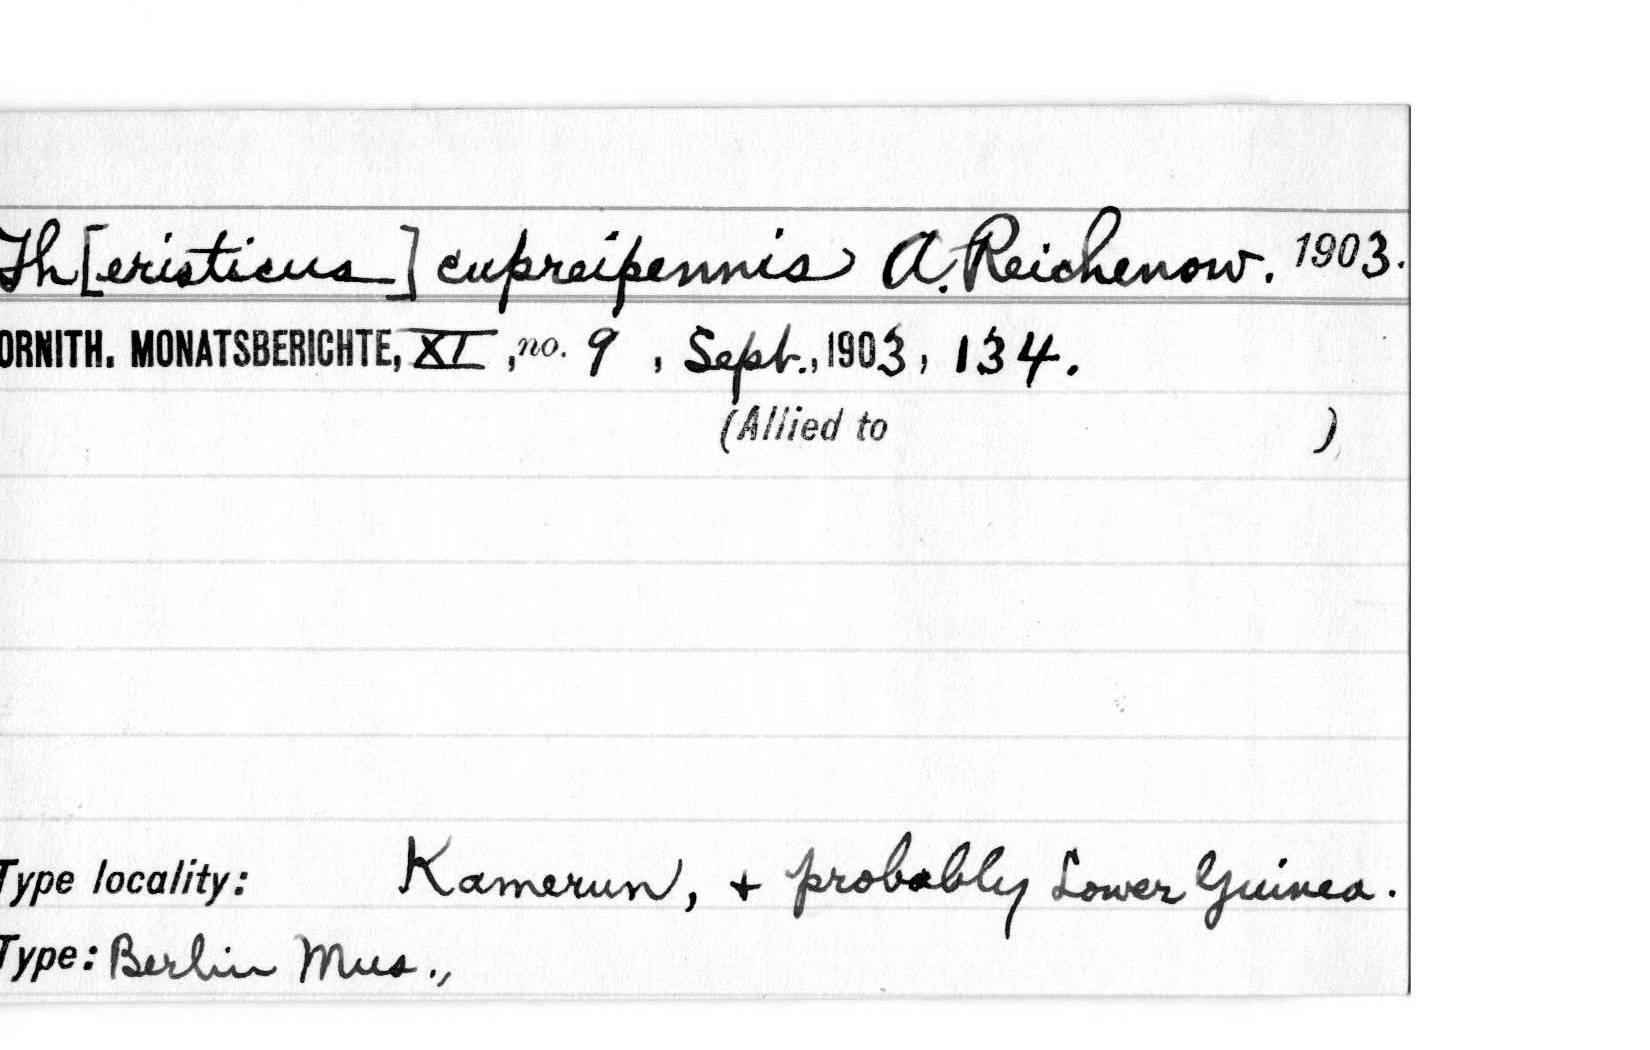 Th[eristicus] cupreipennis A. Reichenow. 1903.
ORNITH. MONATSBERICHTE, XI, no. 9, Sept., 1903, 134.
(Allied to )
Type locality: Kamerun, + probably Lower Guinea.
Type: Berlin Mus.,